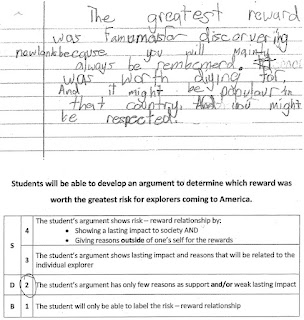 The greatest reward
was famumas for discorvering
new lank because you will mainly
always be rembemerd. It
was worth dying for.
And it might be populaur in
that country, And you might
be respected.
Students will be able to develop an argument to determine which reward was
worth the greatest risk for explorers coming to America.
S
4
The student's argument shows risk – reward relationship by:
• Showing a lasting impact to society AND
• Giving reasons outside of one's self for the rewards
3
The student's argument shows lasting impact and reasons that will be related to the
individual explorer
D
2
The student's argument has only few reasons as support and/or weak lasting impact
B
1
The student will only be able to label the risk – reward relationship